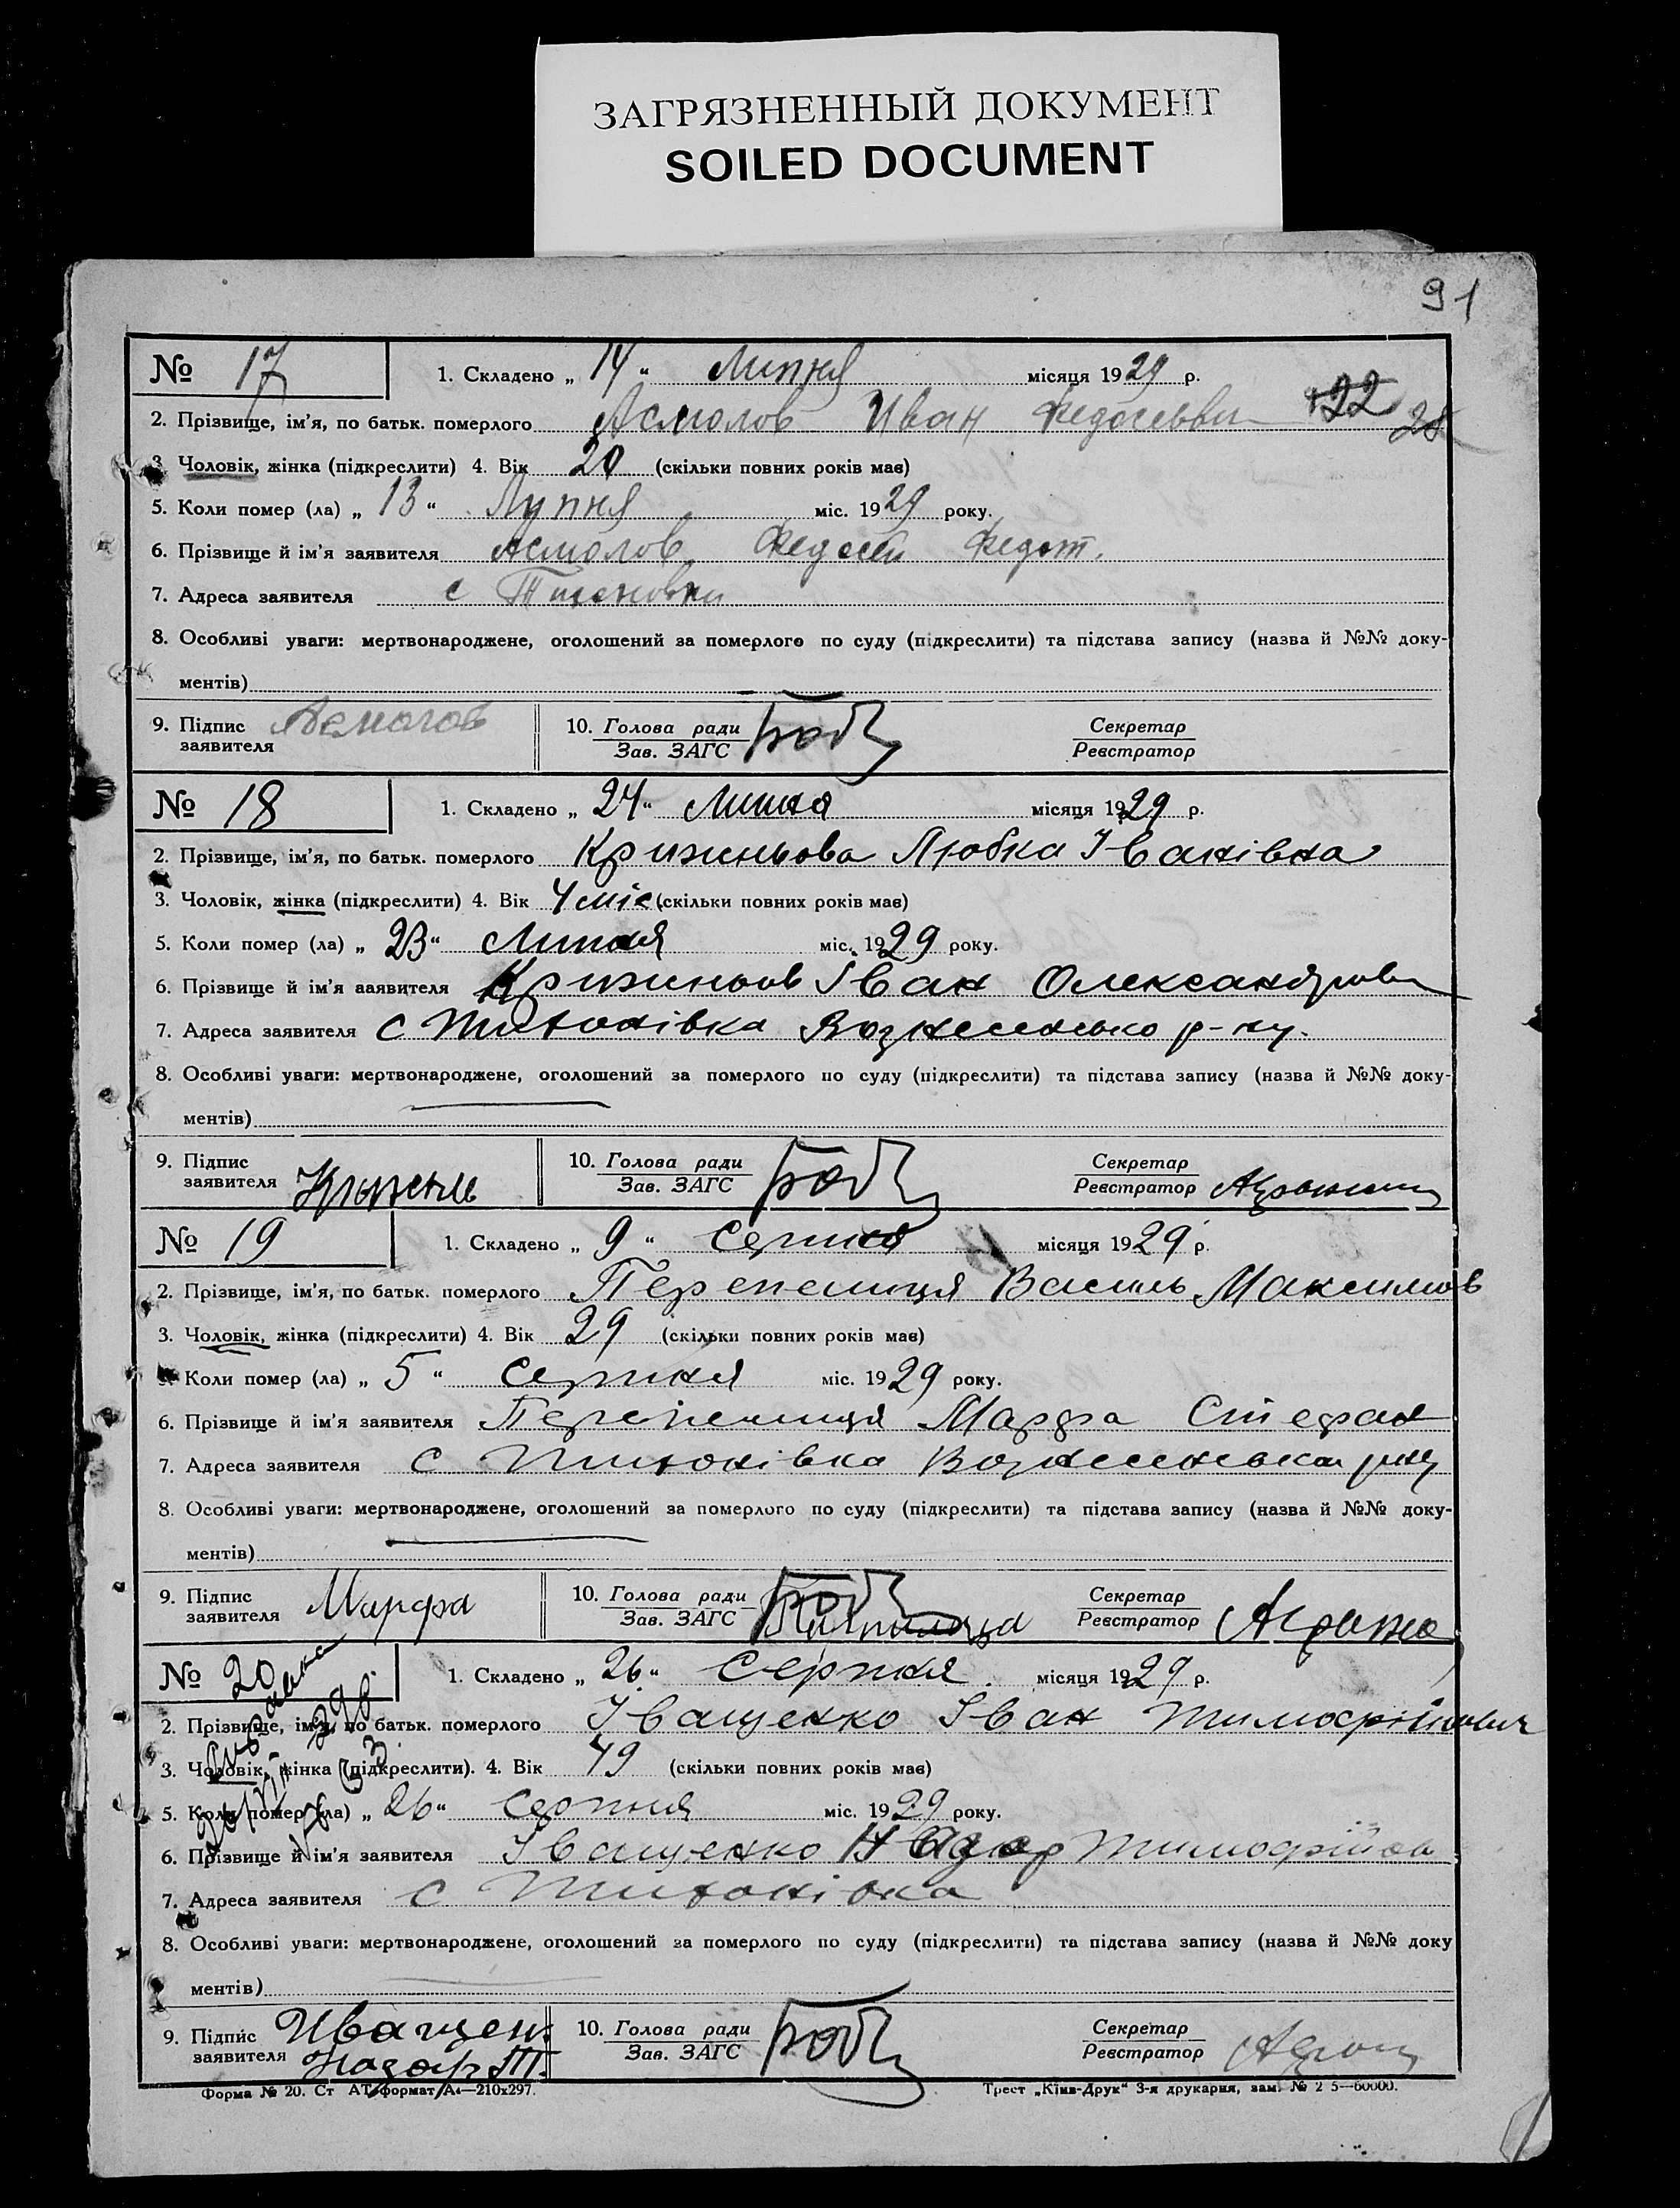 ЗАГРЯЗНЕННЫЙ ДОКУМЕНТ
SOILED DOCUMENT
91
№ 17 1. Складено „ 14 “ Липня місяця 1929 р.
2. Прізвище, ім'я, по батьк. померлого Асмолов Иван Федосеевич 22 28
3. Чоловік, жінка (підкреслити) 4. Вік 20 (скільки повних років має)
5. Коли помер (ла) „ 13 “ Лупня міс. 1929 року.
6. Прізвище й ім'я заявителя Асмолов Федосей Федот.
7. Адреса заявителя с
8. Особливі уваги: мертвонароджене, оголошений за померлого по суду (підкреслити) та підстава запису (назва й №№ доку-
ментів)
9. Підпис заявителя Асмолов 10. Голова ради Зав. ЗАГС Секретар Реєстратор
№ 18 1. Складено „ 24 “ Липня місяця 1929 р.
2. Прізвище, ім'я, по батьк. померлого Крижиньова Любка Іванівна
3. Чоловік, жінка (підкреслити) 4. Вік 4 міс (скільки повних років має)
5. Коли помер (ла) „ 23 “ Липня міс. 1929 року.
6. Прізвище й ім'я заявителя Крижиньов Іван Олександрович
7. Адреса заявителя с Титонівка Вознесенсько р-ну.
8. Особливі уваги: мертвонароджене, оголошений за померлого по суду (підкреслити) та підстава запису (назва й №№ доку-
ментів)
9. Підпис заявителя 10. Голова ради Зав. ЗАГС Секретар Реєстратор
№ 19 1. Складено „ 9 “ Серпня місяця 1929 р.
2. Прізвище, ім'я, по батьк. померлого Перепелиця Василь Максимов
3. Чоловік, жінка (підкреслити) 4. Вік 29 (скільки повних років має)
5. Коли помер (ла) „ 5 “ Серпня міс. 1929 року.
6. Прізвище й ім'я заявителя Перепелиця Марфа Стефан
7. Адреса заявителя с Титонівка
8. Особливі уваги: мертвонароджене, оголошений за померлого по суду (підкреслити) та підстава запису (назва й №№ доку-
ментів)
9. Підпис заявителя Марфа 10. Голова ради Зав. ЗАГС Секретар Реєстратор
№ 20 1. Складено „ 26 “ Серпня місяця 1929 р.
2. Прізвище, ім'я, по батьк. померлого Іващенко Іван Тимофійович
3. Чоловік, жінка (підкреслити). 4. Вік 49 (скільки повних років має)
5. Коли помер (ла) „ 26 “ Серпня міс. 1929 року.
6. Прізвище й ім'я заявителя Іващенко Назар Тимофійов
7. Адреса заявителя с Титонівка
8. Особливі уваги: мертвонароджене, оголошений за померлого по суду (підкреслити) та підстава запису (назва й №№ доку
ментів)
9. Підпис заявителя Иващен. Назар Т. 10. Голова ради Зав. ЗАГС Секретар Реєстратор
Форма № 20. Ст АТ формат А4—210х297. Трест „Київ-Друк“ 3-я друкарня, зам. № 2 5—60000.